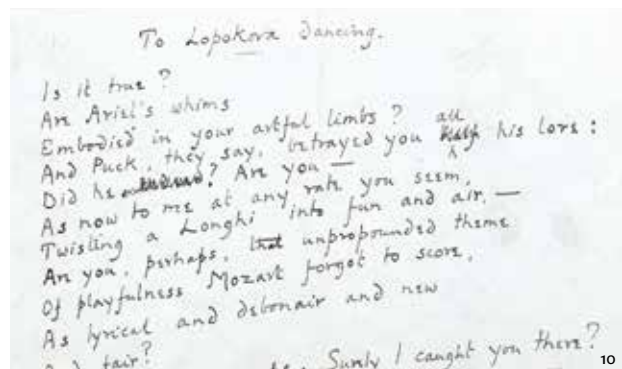 To Lopokova dancing.
Is it true?
Are Ariel's whims
Embodied in your artful limbs?
And Puck, they say, betrayed you all his lore:
Did he ? Are you —
As now to me at any rate you seem,
Twisting a Longhi into fun and air, —
Are you, perhaps, that unpropounded theme
Of playfulness Mozart forgot to score,
As lyrical and debonair and new
And fair?
Surely I caught you there?
10